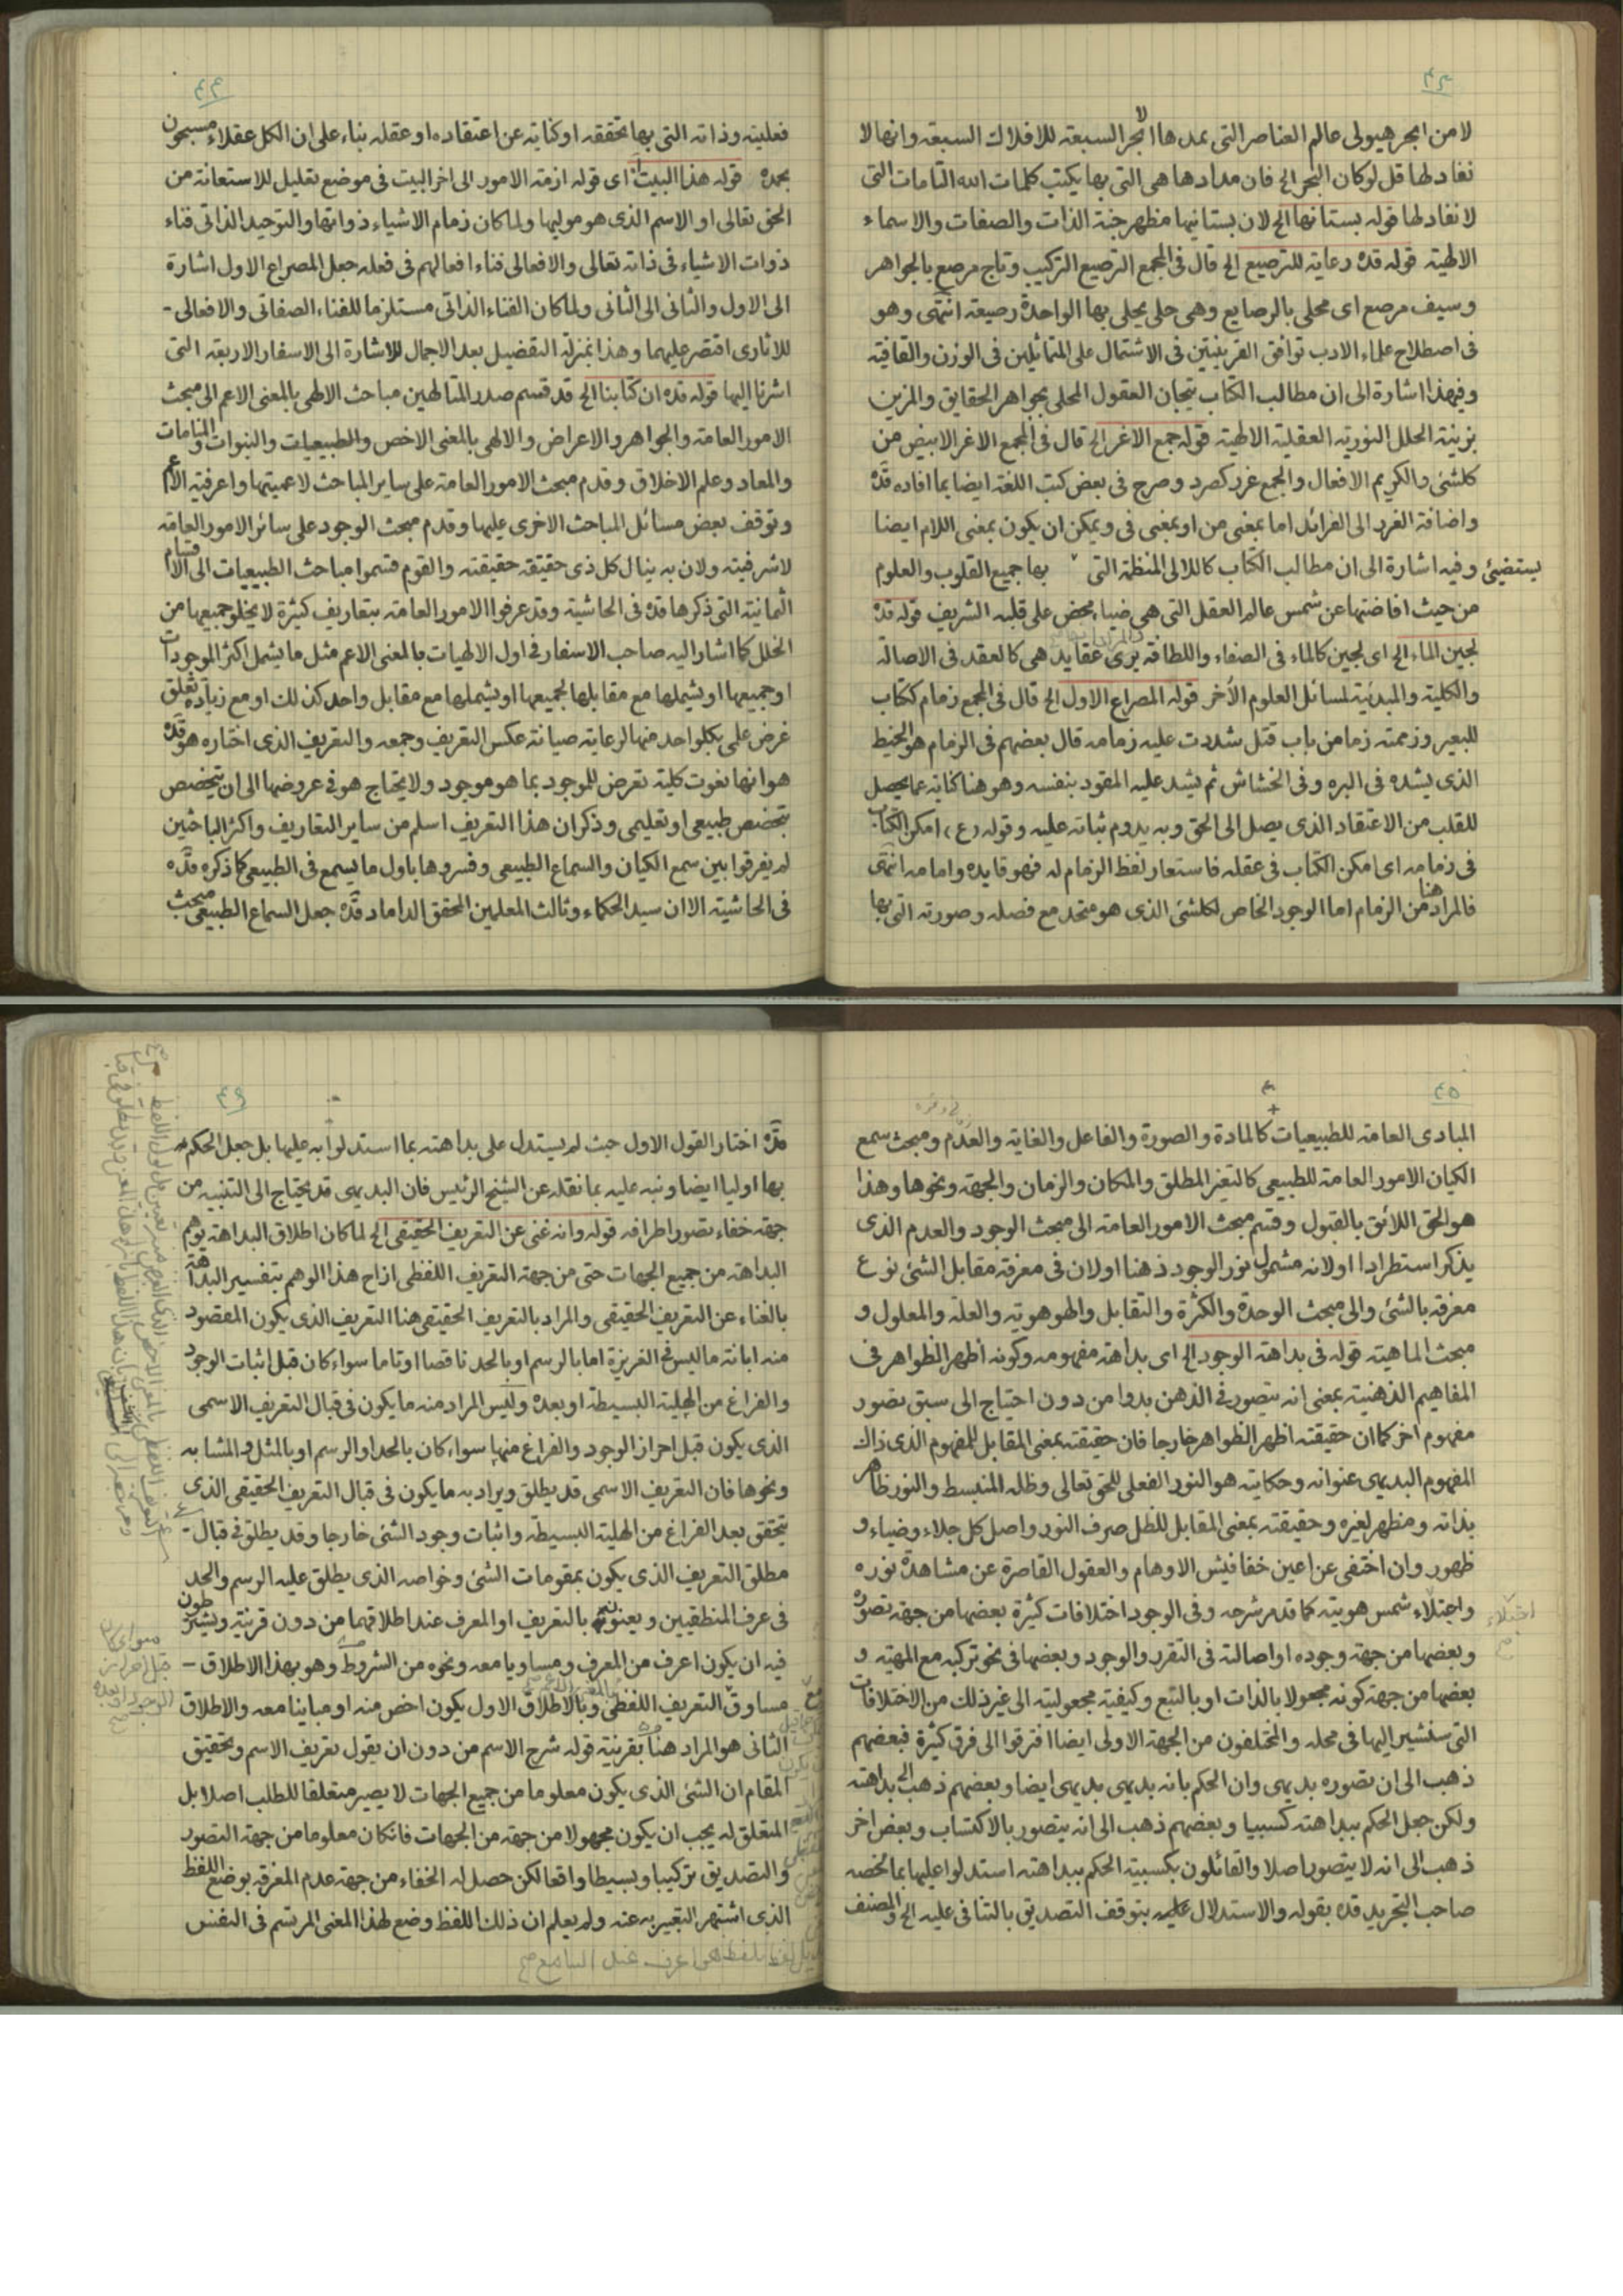 ٤٣
لا من ابحر هيولى عالم العناصر التى يمدها الابحر السبعة للافلاك السبعة وانها لا
نفاد لها قل لو كان البحر الخ فان مدادها هى التى بها يكتب كلمات الله التامات التى
لا نفاد لها قوله بستانها الخ لان بستانيها مظهر جنة الذات والصفات والاسماء
الالهية قوله قده رعاية للترصيع الخ قال فى المجمع الترصيع التركيب وتاج مرصع بالجواهر
وسيف مرصع اى محلى بالرصايع وهى حلى يحلى بها الواحدة رصيعة انتهى وهو
فى اصطلاح علماء الادب توافق القرينتين فى الاشتمال على المتماثلين فى الوزن والقافية
وفيهذا اشارة الى ان مطالب الكتاب تيجان العقول المحلى بجواهر الحقايق والمزين
بزينة الحلل النورية العقلية الالهية قوله جمع الاغر الخ قال فى المجمع الاغر الابيض من
كلشئ والكريم الافعال والجمع غرر كصرد وصرح فى بعض كتب اللغة ايضا بما افاده قده
واضافة الغرر الى الفرائد اما بمعنى من او بمعنى فى ويمكن ان يكون بمعنى اللام ايضا
وفيه اشارة الى ان مطالب الكتاب كاللالى المنظمة التى يستضيئ بها جميع القلوب والعلوم
من حيث افاضتها عن شمس عالم العقل التى هى ضياء محض على قلبه الشريف قوله قده
لجين الماء الخ اى لجين كالماء فى الصفاء واللطافة يرى عقايد هى كالعقد فى الاصالة
والكلية والمبدئية لمسائل العلوم الأخر قوله المصراع الاول الخ قال فى المجمع زمام ككتاب
للبعير وزممته زما من باب قتل شددت عليه زمامه قال بعضهم فى الزمام هو الخيط
الذى يشده فى البره وفى الخشاش ثم يشد عليه المقود بنفسه وهو هنا كناية عما يحصل
للقلب من الاعتقاد الذى يصل الى الحق وبه يدوم ثباته عليه وقوله (ع) امكن الكتاب
فى زمامه اى امكن الكتاب فى عقله فاستعار لفظ الزمام له فهو قايده وامامه انتهى
فالمراد هنا من الزمام اما الوجود الخاص لكلشئ الذى هو متحد مع فصله وصورته التى بها
٤٤
فعليته وذاته التى بها تحققه او كناية عن اعتقاده او عقله بناء على ان الكل عقلاء مسبحون
بحمده قوله هذا البيت اى قوله ازمة الامور الى اخر البيت فى موضع تعليل للاستعانة من
الحق تعالى او الاسم الذى هو موليها ولما كان زمام الاشياء ذواتها والتوحيد الذاتى فناء
ذوات الاشياء فى ذاته تعالى والافعالى فناء افعالهم فى فعله جعل المصراع الاول اشارة
الى الاول والثانى الى الثانى ولما كان الفناء الذاتى مستلزما للفناء الصفاتى والافعالى -
للاثارى اقتصر عليهما وهذا بمنزلة التفصيل بعد الاجمال للاشارة الى الاسفار الاربعة التى
اشرنا اليها قوله قده ان كتابنا الخ قد قسم صدر المتالهين مباحث الالهى بالمعنى الاعم الى مبحث
الامور العامة والجواهر والاعراض والالهى بالمعنى الاخص والطبيعيات والنبوات والمنامات
والمعاد وعلم الاخلاق وقدم مبحث الامور العامة على ساير المباحث لاعميتها واعرفية الاعم
وتوقف بعض مسائل المباحث الاخرى عليها وقدم مبحث الوجود على سائر الامور العامة
لاشرفيته ولان به ينال كل ذى حقيقة حقيقته والقوم قسموا مباحث الطبيعيات الى الاقسام
الثمانية التى ذكرها قده فى الحاشية وقد عرفوا الامور العامة بتعاريف كثيرة لا يخلو جميعها من
الخلل كما اشار اليه صاحب الاسفار فى اول الالهيات بالمعنى الاعم مثل ما يشمل اكثر الموجودات
او جميعها او يشملها مع مقابلها لجميعها او يشملها مع مقابل واحد كذلك او مع زيادة تعلق
غرض علمى بكلواحد منهما لرعاية صيانة عكس التعريف وجمعه والتعريف الذى اختاره هو قده
هو انها نعوت كلية تعرض للموجود بما هو موجود ولا يحتاج هو فى عروضها الى ان يتخصص
بتخصص طبيعى او تعليمى وذكر ان هذا التعريف اسلم من ساير التعاريف واكثر الباحثين
لم يفرقوا بين سمع الكيان والسماع الطبيعى وفسروها باول ما يسمع فى الطبيعى كما ذكره قده
فى الحاشية الا ان سيد الحكماء وثالث المعلمين المحقق الداماد قده جعل السماع الطبيعى مبحث
٤٥
المبادى العامة للطبيعيات كالمادة والصورة والفاعل والغاية والعدم ومبحث سمع
الكيان الامور العامة للطبيعى كالتغير المطلق والمكان والزمان والجهة ونحوها وهذا
هو الحق اللائق بالقبول وقسم مبحث الامور العامة الى مبحث الوجود والعدم الذى
يذكر استطرادا اولانه مشمول نور الوجود ذهنا اولان فى معرفة مقابل الشئ نوع
معرفة بالشئ والى مبحث الوحدة والكثرة والتقابل والهوهوية والعلة والمعلول و
مبحث الماهية قوله فى بداهة الوجود الخ اى بداهة مفهومه وكونه اظهر الظواهر فى
المفاهيم الذهنية بمعنى انه يتصور فى الذهن بدوا من دون احتياج الى سبق تصور
مفهوم اخر كما ان حقيقته اظهر الظواهر خارجا فان حقيقته بمعنى المقابل للمفهوم الذى ذاك
المفهوم البديهى عنوانه وحكايته هو النور الفعلى للحق تعالى وظله المنبسط والنور ظاهر
بذاته ومظهر لغيره وحقيقته بمعنى المقابل للظل صرف النور واصل كل جلاء وضياء و
ظهور وان اختفى عن اعين خفافيش الاوهام والعقول القاصرة عن مشاهدة نوره
واجتلاء شمس هويته كما قدم شرحه وفى الوجود اختلافات كثيرة بعضها من جهة تصوره
وبعضها من جهة وجوده او اصالته فى التقرر والوجود وبعضها فى نحو تركبه مع المهية و
بعضها من جهة كونه مجعولا بالذات او بالتبع وكيفية مجعوليته الى غير ذلك من الاختلافات
التى سنشير اليها فى محله والمختلفون من الجهة الاولى ايضا افترقوا الى فرق كثيرة فبعضهم
ذهب الى ان تصوره بديهى وان الحكم بانه بديهى بديهى ايضا وبعضهم ذهب الى بداهته
ولكن جعل الحكم ببداهته كسبيا وبعضهم ذهب الى انه يتصور بالاكتساب وبعض اخر
ذهب الى انه لا يتصور اصلا والقائلون بكسبية الحكم ببداهته استدلوا عليها بما لخصه
صاحب التجريد قده بقوله والاستدلال عليه بتوقف التصديق بالتنافى عليه الخ والمصنف
اجتلاء
٤٦
قده اختار القول الاول حيث لم يستدل على بداهته بما استدلوا به عليها بل جعل الحكم
بها اوليا ايضا ونبه عليه بما نقله عن الشيخ الرئيس فان البديهى قد يحتاج الى التنبيه من
جهة خفاء تصور اطرافه قوله وانه غنى عن التعريف الحقيقى الخ لما كان اطلاق البداهة يوهم
البداهة من جميع الجهات حتى من جهة التعريف اللفظى ازاح هذا الوهم بتفسير البداهة
بالغناء عن التعريف الحقيقى والمراد بالتعريف الحقيقى هنا التعريف الذى يكون المقصود
منه ابانة ما ليس فى الغريزة اما بالرسم او بالحد ناقصا او تاما سواء كان قبل اثبات الوجود
والفراغ من الهلية البسيطة او بعده وليس المراد منه ما يكون فى قبال التعريف الاسمى
الذى يكون قبل احراز الوجود والفراغ منها سواء كان بالحد او الرسم او بالمثل والمشابه
ونحوها فان التعريف الاسمى قد يطلق ويراد به ما يكون فى قبال التعريف الحقيقى الذى
يتحقق بعد الفراغ من الهلية البسيطة واثبات وجود الشئ خارجا وقد يطلق فى قبال -
مطلق التعريف الذى يكون بمقومات الشئ وخواصه الذى يطلق عليه الرسم والحد
فى عرف المنطقيين ويعنونهما بالتعريف او المعرف عند اطلاقهما من دون قرينة ويشترطون
فيه ان يكون اعرف من المعرف ومساويا معه ونحوه من الشروط وهو بهذا الاطلاق -
مساوق التعريف اللفظى وبالاطلاق الاول يكون اخص منه او مباينا معه والاطلاق
الثانى هو المراد هنا بقرينة قوله شرح الاسم من دون ان يقول تعريف الاسم وتحقيق
المقام ان الشئ الذى يكون معلوما من جميع الجهات لا يصير متعلقا للطلب اصلا بل
المتعلق له يجب ان يكون مجهولا من جهة من الجهات فانكان معلوما من جهة التصور
والتصديق تركيبا وبسيطا واقعا لكن حصل له الخفاء من جهة عدم المعرفة بوضع اللفظ
الذى اشتهر التعبير به عنه ولم يعلم ان ذلك اللفظ وضع لهذا المعنى المرتسم فى النفس
سواء كان
قبل احراز
الوجود او بعده